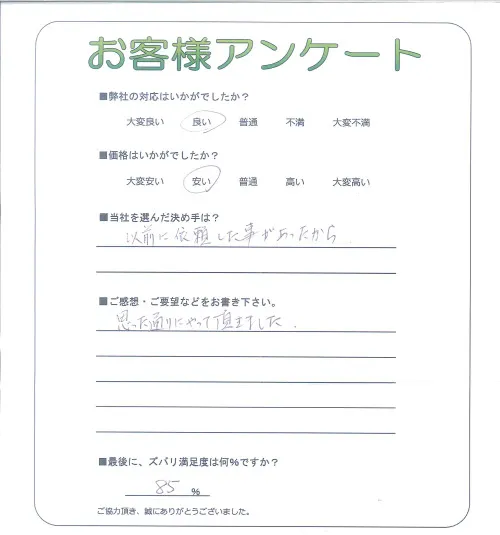 お客様アンケート
■弊社の対応はいかがでしたか？
大変良い 良い 普通 不満 大変不満
■価格はいかがでしたか？
大変安い 安い 普通 高い 大変高い
■当社を選んだ決め手は？
以前に依頼した事があったから.
■ご感想・ご要望などをお書き下さい。
思った通りにやって頂きました.
■最後に、ズバリ満足度は何％ですか？
85 %
ご協力頂き、誠にありがとうございました。